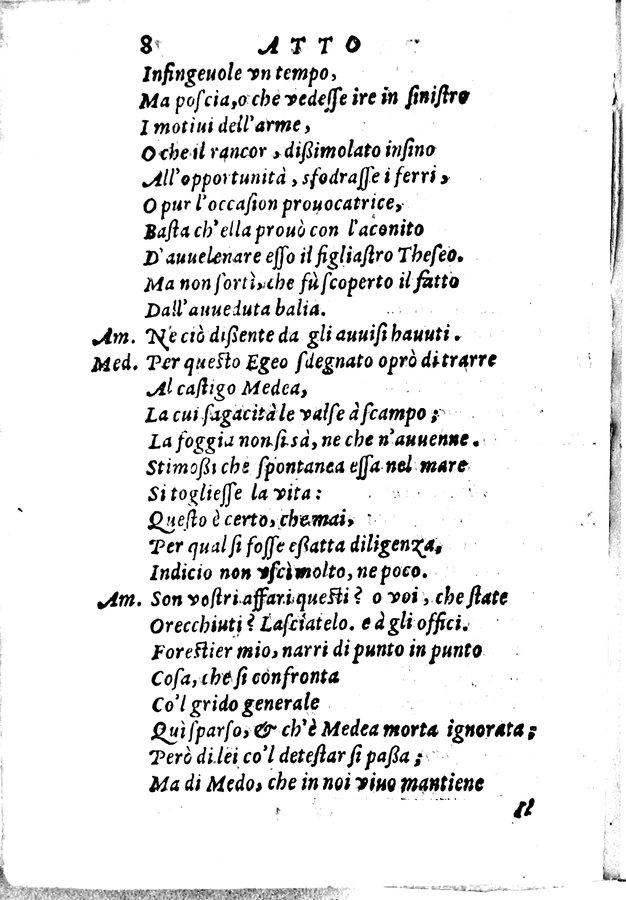 8 ATTO
Infingeuole vn tempo,
Ma poscia, o che vedesse ire in sinistro
I motiui dell'arme,
O che il rancor, dißimolato insino
All'opportunità, sfodrasse i ferri,
O pur l'occasion prouocatrice,
Basta ch'ella prouò con l'aconito
D'auuelenare esso il figliastro Theseo.
Ma non sortì, che fù scoperto il fatto
Dall'auueduta balia.
Am. Ne ciò dißente da gli auuisi hauuti.
Med. Per questo Egeo sdegnato oprò di trarre
Al castigo Medea,
La cui sagacità le valse à scampo;
La foggia non si sà, ne che n'auuenne.
Stimoßi che spontanea essa nel mare
Si togliesse la vita:
Questo è certo, che mai,
Per qual si fosse eßatta diligenza,
Indicio non vscì molto, ne poco.
Am. Son vostri affari questi? o voi, che state
Orecchiuti? Lasciatelo. e à gli offici.
Forestier mio, narri di punto in punto
Cosa, che si confronta
Co'l grido generale
Qui sparso, & ch'è Medea morta ignorata;
Però di lei co'l detestar si paßa;
Ma di Medo, che in noi viuo mantiene
Il